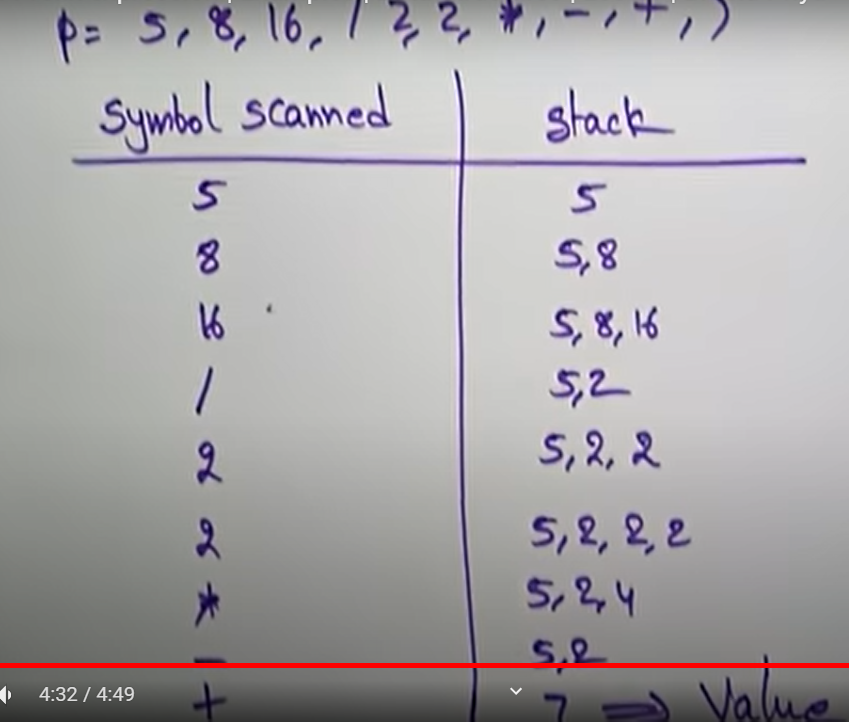 p= 5, 8, 16, / 2, 2, *, -, +, )
Symbol scanned stack
5 5
8 5, 8
16 5, 8, 16
/ 5, 2
2 5, 2, 2
2 5, 2, 2, 2
* 5, 2, 4
- 5, 2
+ 7 ⇒ Value
4:32 / 4:49